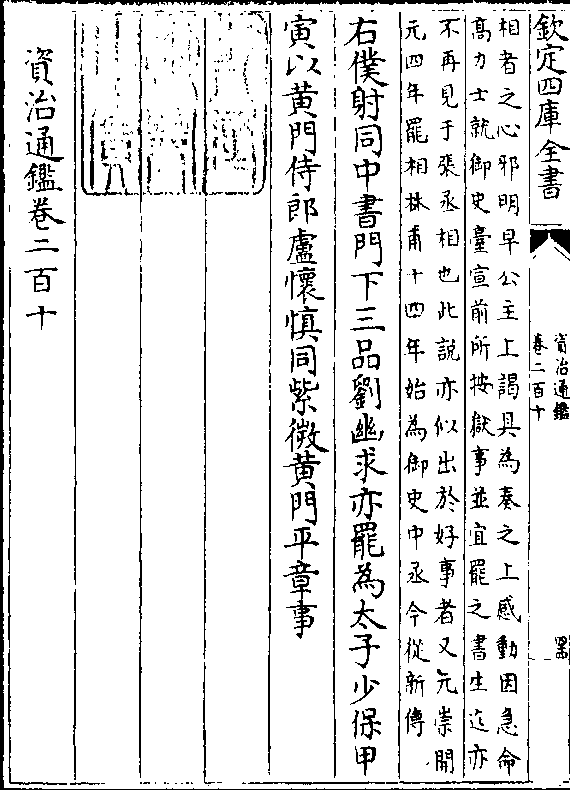 欽定四庫全書
資治通鑑
卷二百十
相者之心邪明早公主上謁具為奏之上感動因急命
高力士就御史臺宣前所按獄事並宜罷之書生迄亦
不再見于張丞相也此說亦似出於好事者又元崇開
元四年罷相林甫十四年始為御史中丞今從新傳
右僕射同中書門下三品劉幽求亦罷為太子少保甲
寅以黄門侍郎盧懷慎同紫微黄門平章事
資治通鑑卷二百十